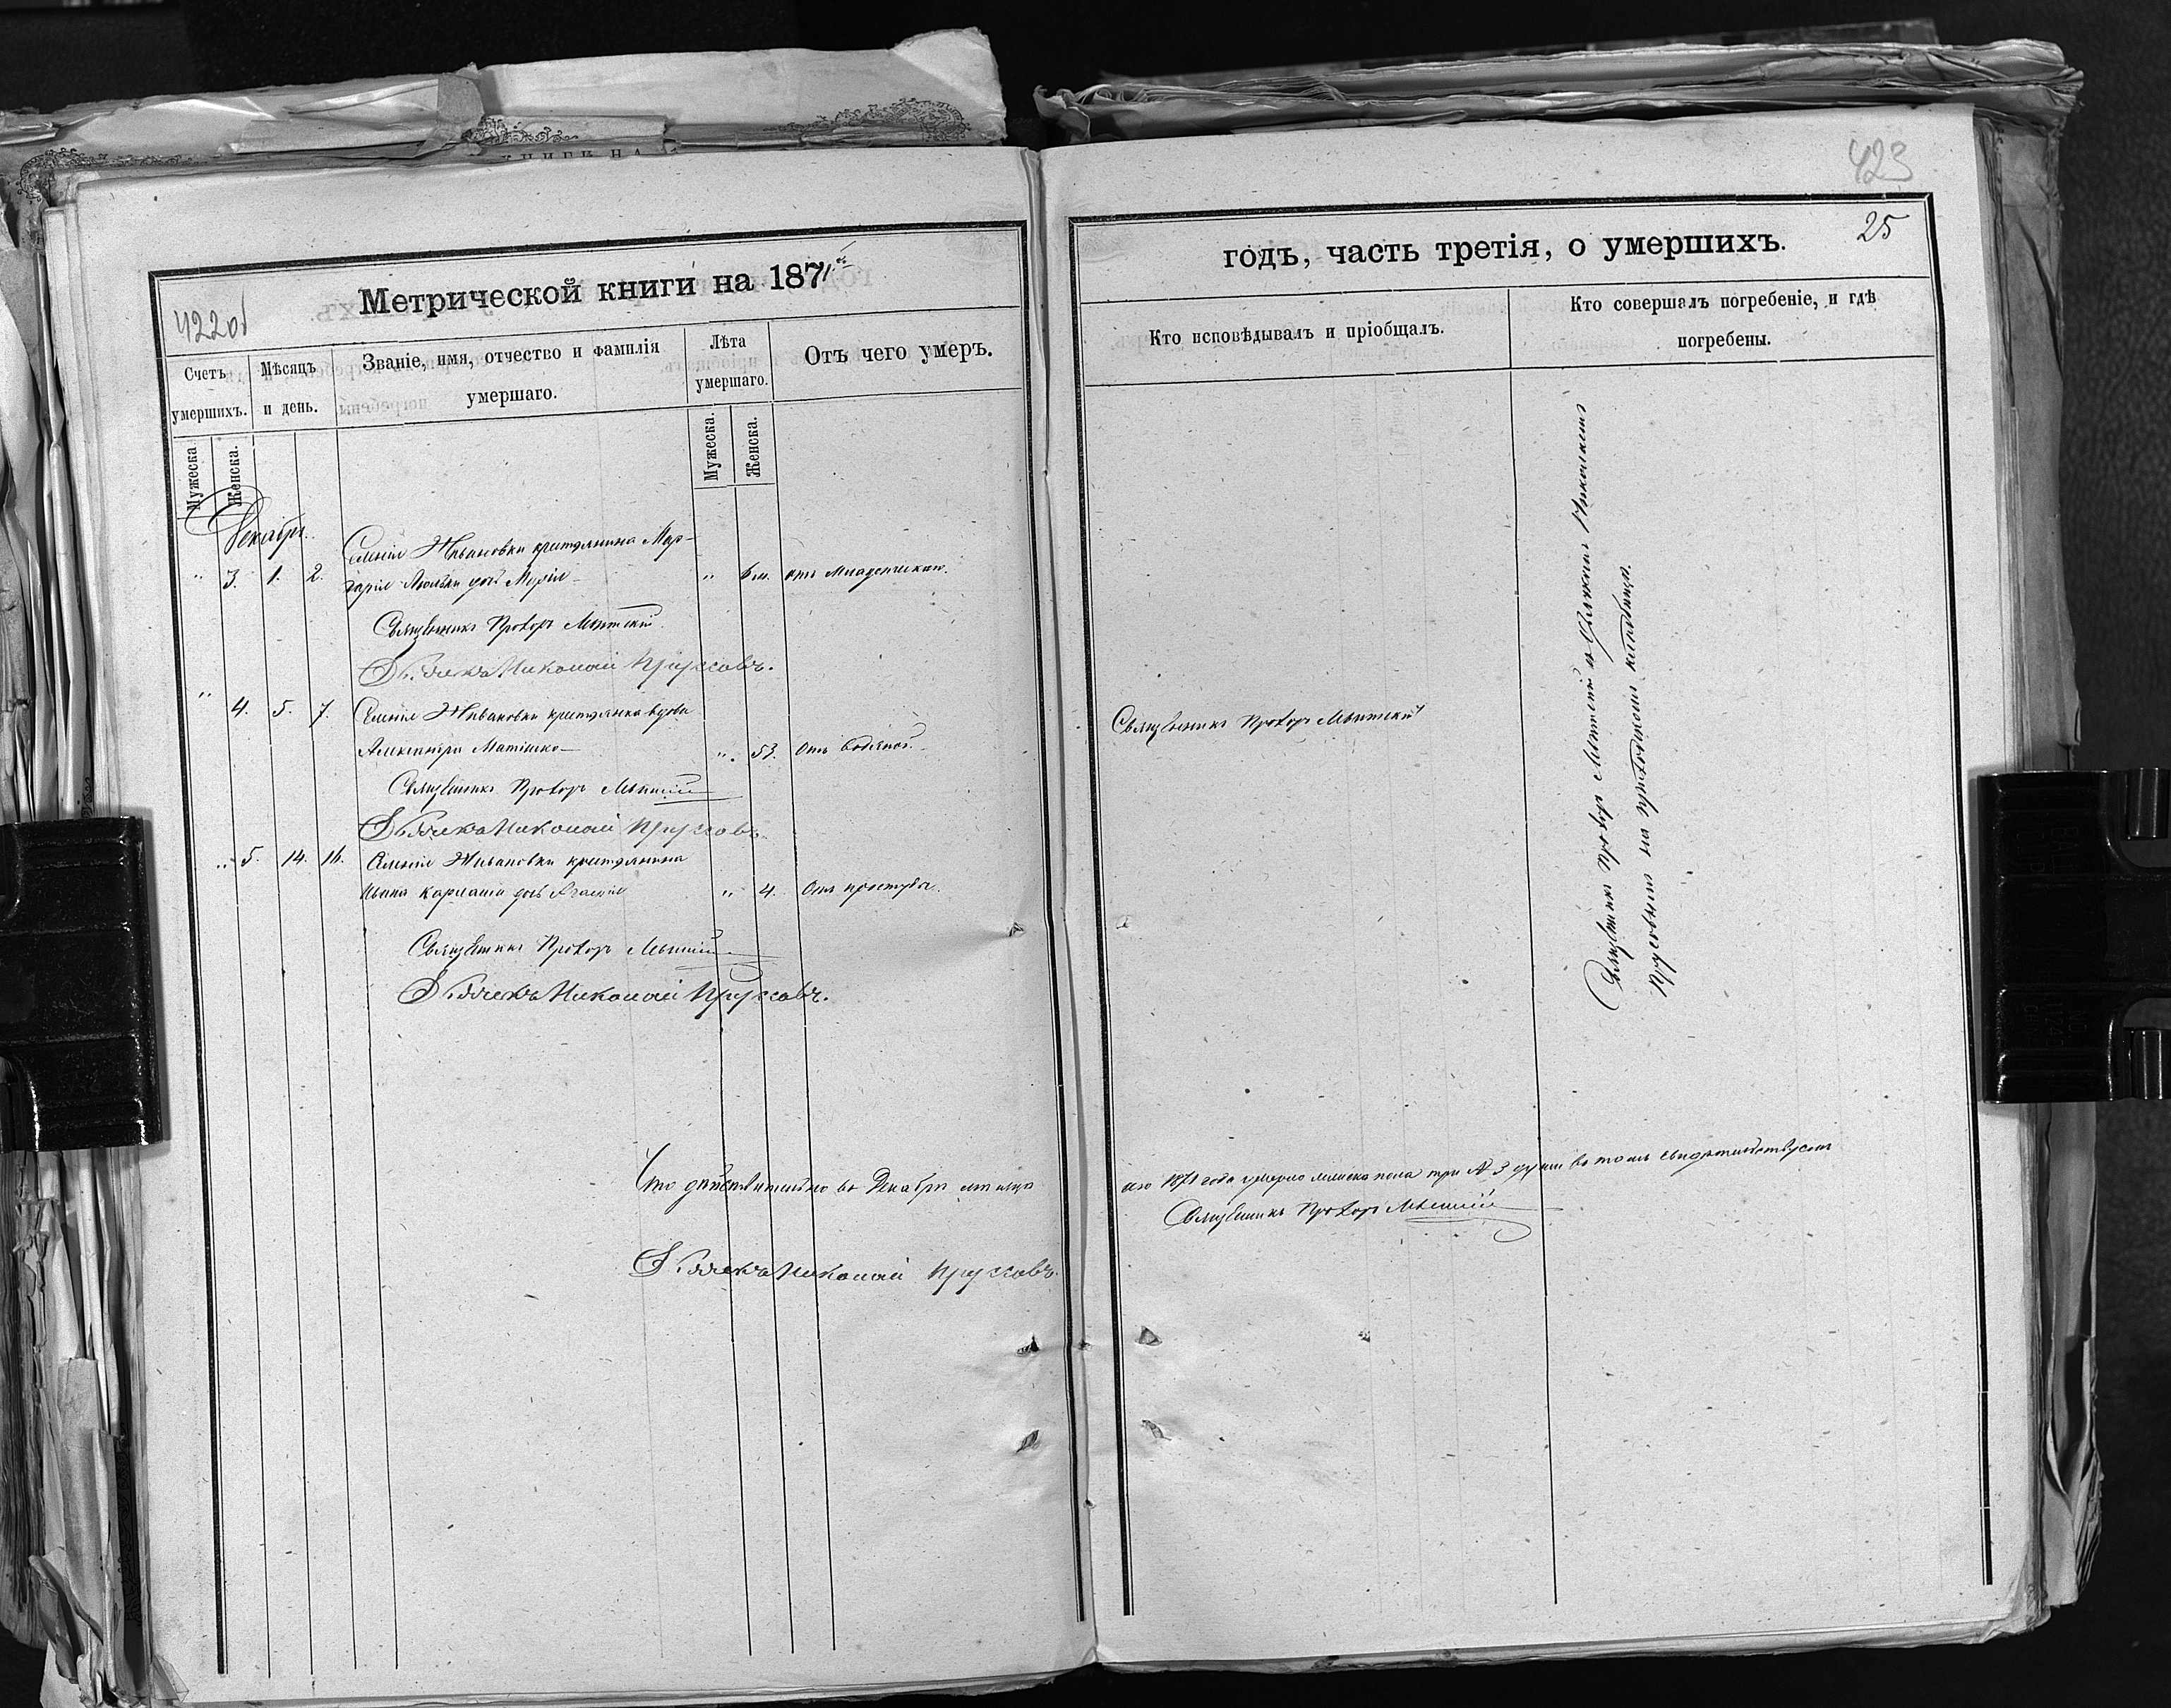 422об
Метрической книги на 1871й
Счетъ умершихъ.
Мѣсяцъ и день.
Званіе, имя, отчество и фамилія умершаго.
Лѣта умершаго.
Отъ чего умеръ.
Мужеска.
Женска.
Мужеска.
Женска.
Декабрь.
Селенія Живановки крестьянина
„ 3. 1. 2. дочь Марія „ 6 м. отъ младенческой.
Священникъ Прохоръ
Дьячекъ Николай Пруссовъ.
„ 4. 5. 7. Селенія Живановки крестьянка вдова
Александра Матѣшко „ 53. Отъ водяной.
Священникъ Прохоръ
Дьячекъ Николай Пруссовъ.
„ 5. 14. 16. Селенія Живановки крестьянина
Ивана дочь „ 4. Отъ простуды.
Священникъ Прохоръ
Дьячекъ Николай Пруссовъ.
Что дѣйствительно въ Декабрѣ мѣсяцѣ
Дьячекъ Николай Пруссовъ.
423
25
годъ, часть третія, о умершихъ.
Кто исповѣдывалъ и пріобщалъ.
Кто совершалъ погребеніе, и гдѣ погребены.
Священникъ Прохоръ
Священникъ Прохоръ съ Дьячкомъ Николаемъ
Пруссовымъ на приходскомъ кладбищѣ.
1871 года умерло женска пола три № 3 души въ томъ свидѣтельствуемъ
Священникъ Прохоръ